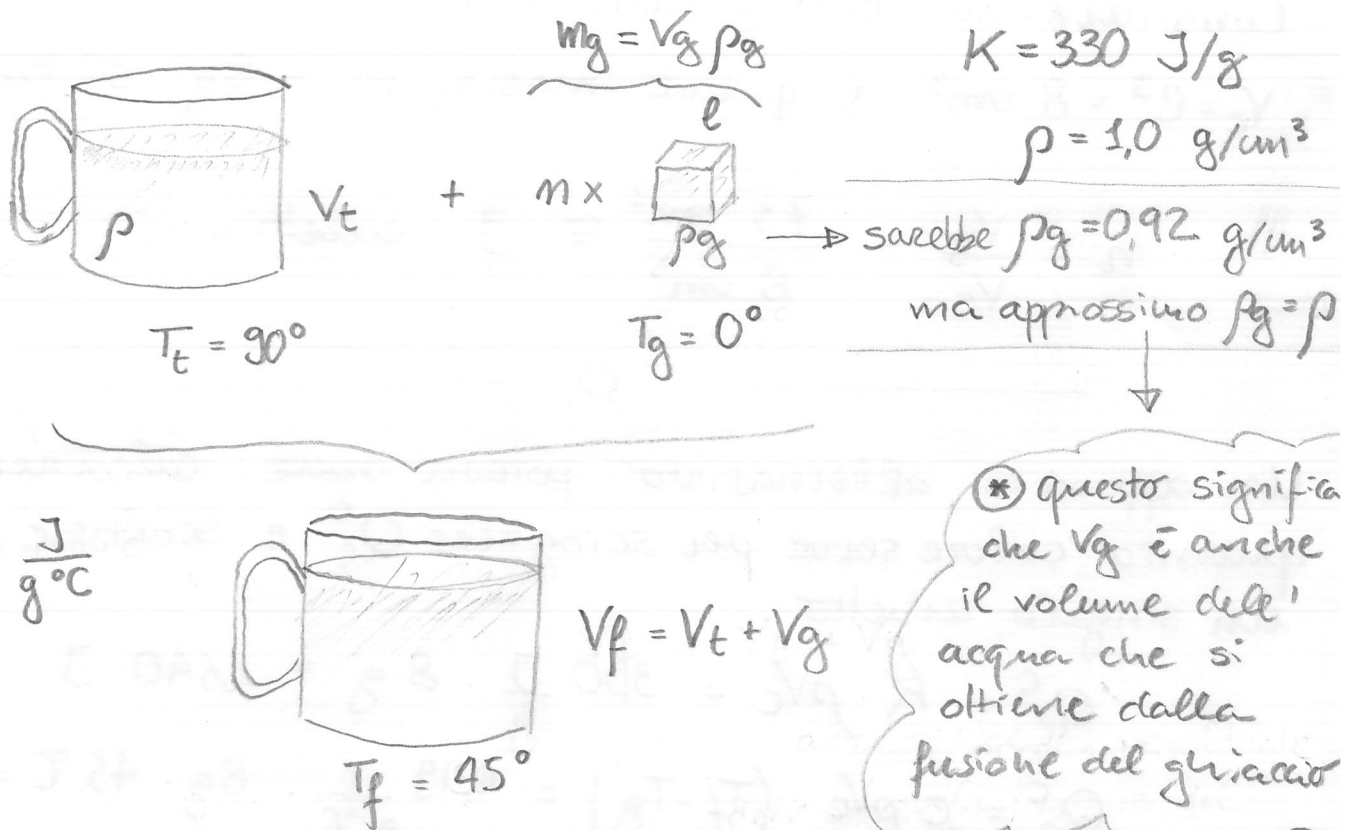 mg = Vg ρg
K = 330 J/g
ρ = 1,0 g/cm³
l
ρ
Vt
+
n ×
ρg
→ sarebbe ρg = 0,92 g/cm³
ma approssimo ρg = ρ
Tt = 90°
Tg = 0°
J
g °C
Vf = Vt + Vg
Tf = 45°
* questo significa
che Vg è anche
il volume dell'
acqua che si
ottiene dalla
fusione del ghiaccio